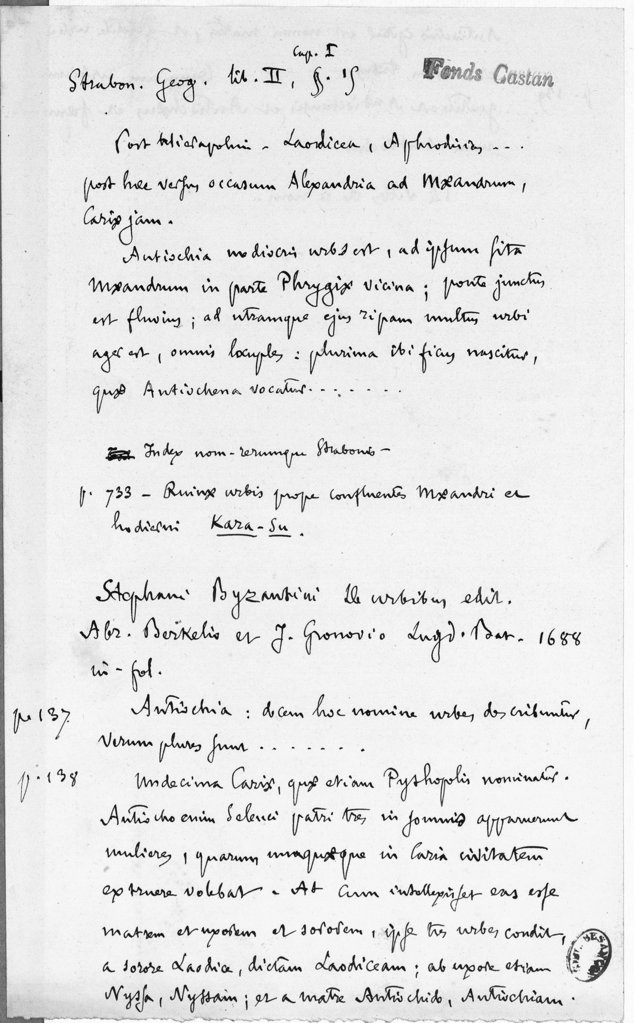 Cap. I
Strabon. Geog. lib. II, §. 15
Fonds Castan
Post Hierapolim – Laodicea, Aphrodisias ...
post hæc versus occasum Alexandria ad Mæandrum,
Cariæ jam.
Antiochia mediocris urbs est, ad ipsum sita
Mæandrum in parte Phrygiæ vicina ; ponte junctus
est fluvius ; ad utramque ejus ripam multus urbi
ager est, omnis locuples : plurima ibi ficus nascitur,
quæ Antiochena vocatur.......
Index nom-rerumque Strabonis –
p. 733 – Ruinæ urbis prope confluentes Mæandri et
hodierni Kara-Su.
Stephani Byzantini De urbibus edit.
Abr. Berkelio et J. Gronovio Lugd. Bat. 1688
in-fol.
p. 137 Antiochia : decem hoc nomine urbes describuntur,
verum plures sunt .......
p. 138 Undecima Cariæ, quæ etiam Pythopolis nominatur.
Antiocho enim Seleuci patri tres in somnis apparuerunt
mulieres, quarum unaquæque in Caria civitatem
extruere volebat. At cum intellexisset eas esse
matrem et uxorem et sororem, ipse tres urbes condit,
a sorore Laodice, dictam Laodiceam ; ab uxore etiam
Nyssa, Nyssam ; et a matre Antiochide, Antiochiam.